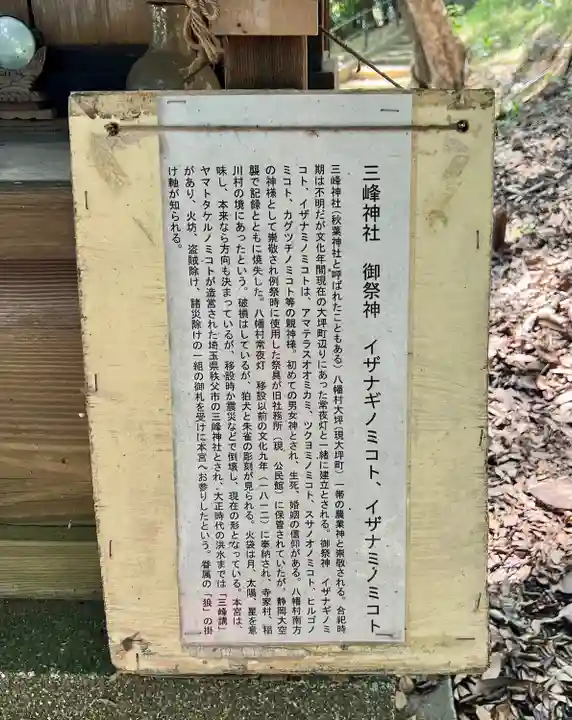 三峰神社　御祭神　イザナギノミコト、イザナミノミコト
三峰神社（秋葉神社と呼ばれたこともある）八幡村大坪（現大坪町）一帯の農業神と崇敬される。合祀時
期は不明だが文化年間現在の大坪町辺りにあった常夜灯と一緒に建立とされる。御祭神　イザナギノミ
コト、イザナミノミコトは、アマテラスオオミカミ、ツクヨミノミコト、スサノオノミコト、ヒルゴノ
ミコト、カグツチノミコト等の親神様。初めての男女神とされ、生死、婚姻の信仰がある。八幡村南方
の神様として崇敬され例祭時に使用した祭具が旧社務所（現、公民館）に保管されていたが、静岡大空
襲で記録とともに焼失した。八幡村常夜灯　移設以前の文化九年（一八一二）に奉納され、寺家村、稲
川村の境にあったという。破損はしているが、狛犬と朱雀の彫刻が見られる。火袋は月、太陽、星を意
味し、本来なら方向も決まっているが、移設時か震災などで倒壊し、現在の形となっている。本宮は、
ヤマトタケルノミコトが造営された埼玉県秩父市の三峰神社とされ、大正時代の洪水までは「三峰講」
があり、火坊、盗賊除け、諸災除けの一組の御札を受けに本宮へお参りしたという。眷属の「狼」の掛
け軸が知られる。